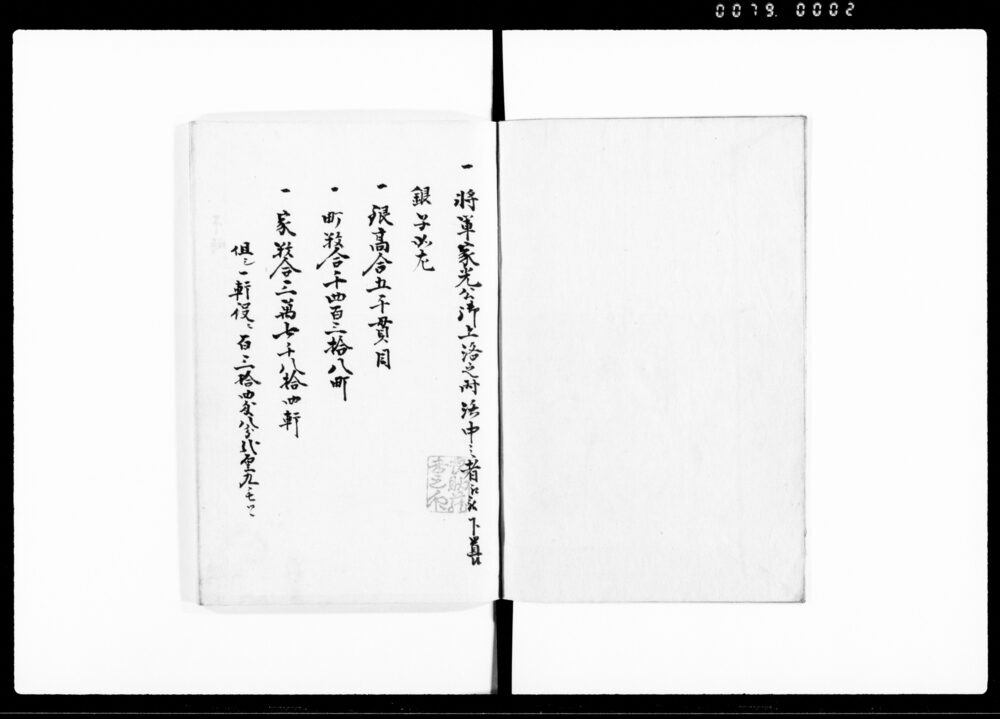 0079. 0002
一 将軍家光公御上洛之時洛中之者江被下員
銀子如左
一 銀高合五千貫目
一 町数合千四百三拾八町
一 家数合三萬七千八拾四軒
但シ一軒役ニ百三拾四匁八分弐厘九毛ツヽ